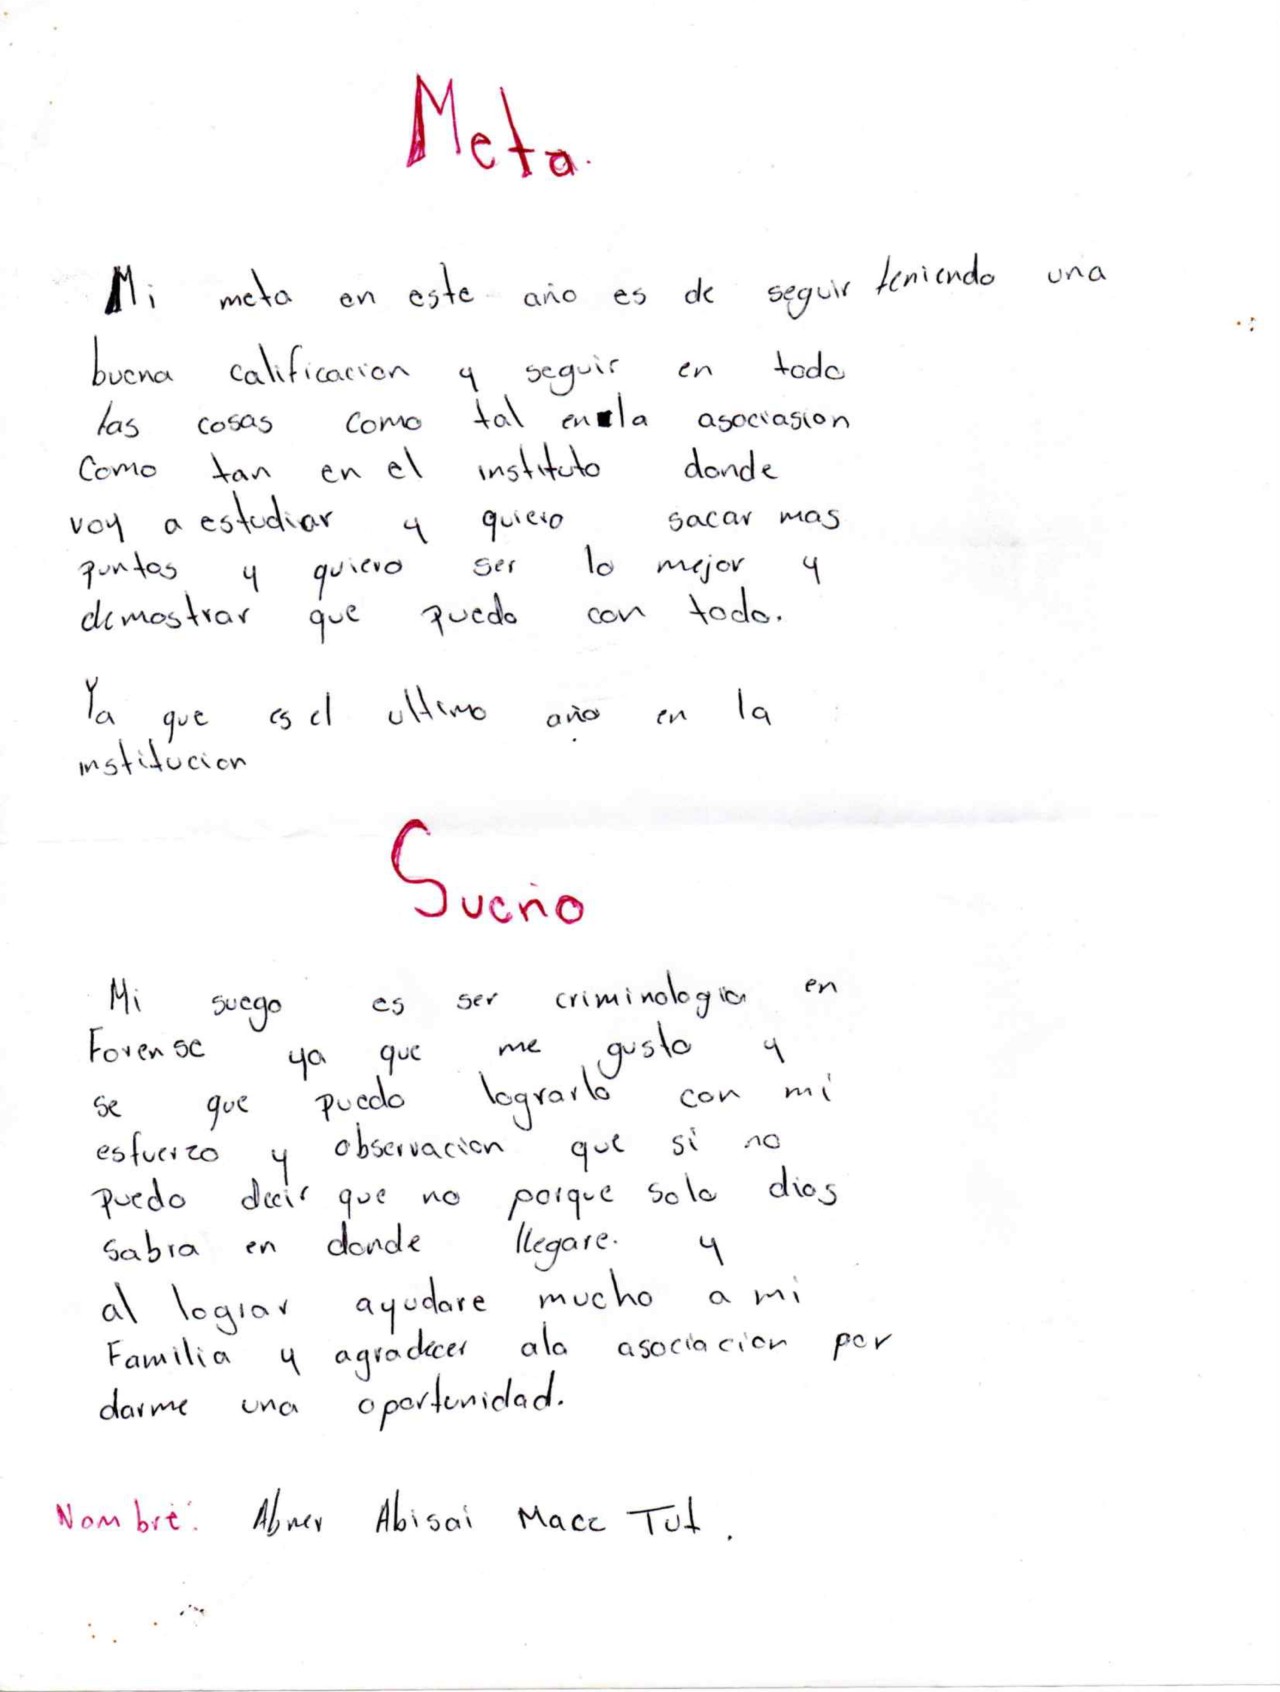 Meta.
Mi meta en este año es de seguir teniendo una
buena calificacion y seguir en todo
las cosas como tal en la asociasion
Como tan en el instituto donde
voy a estudiar y quiero sacar mas
puntos y quiero ser lo mejor y
demostrar que puedo con todo.
Ya que es el ultimo año en la
institucion
Sueño
Mi suego es ser criminologia en
Forense ya que me gusto y
se que puedo lograrlo con mi
esfuerzo y observacion que si no
puedo decir que no porque solo dios
Sabra en donde llegare. y
al lograr ayudare mucho a mi
Familia y agradecer ala asociacion por
darme una oportunidad.
Nombre: Abner Abisai Macz Tut.